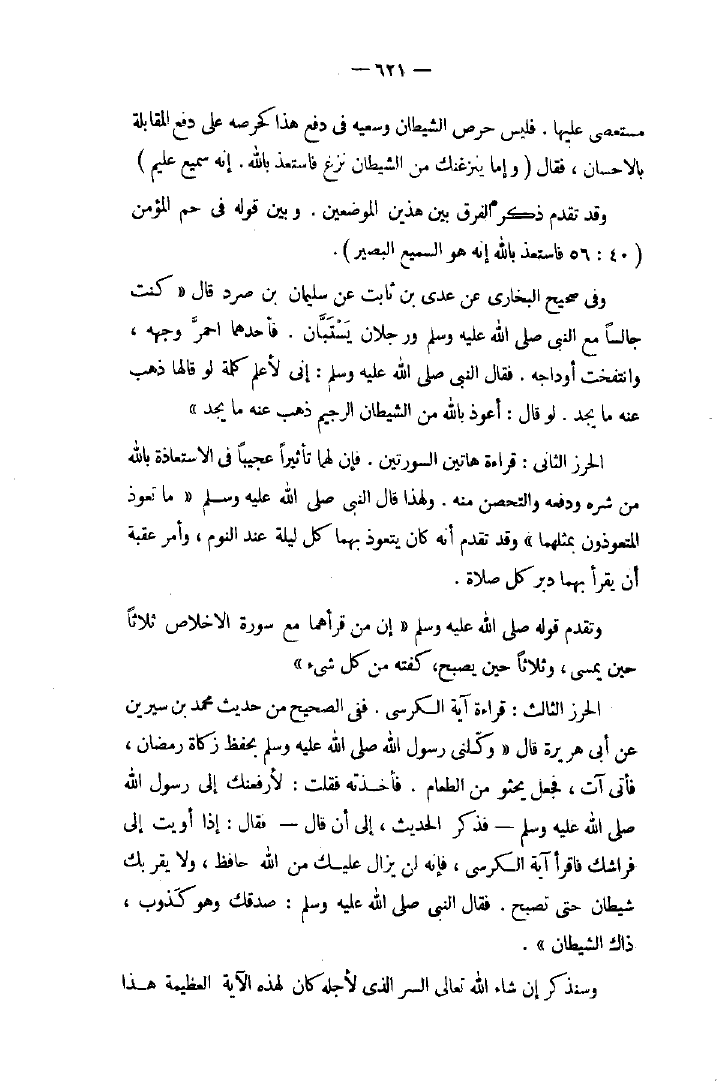 — ٦٢١ —
مستعصى عليها . فليس حرص الشيطان وسعيه فى دفع هذا كحرصه على دفع المقابلة
بالاحسان ، فقال ( وإما ينزغنك من الشيطان نزغ فاستعذ بالله . إنه سميع عليم )
وقد تقدم ذكر الفرق بين هذين الموضعين . وبين قوله فى حم المؤمن
( ٤٠ : ٥٦ فاستعذ بالله إنه هو السميع البصير ) .
وفى صحيح البخارى عن عدى بن ثابت عن سليمان بن صرد قال « كنت
جالساً مع النبى صلى الله عليه وسلم ورجلان يَسْتَبَّان . فأحدهما احمرَّ وجهه ،
وانتفخت أوداجه . فقال النبى صلى الله عليه وسلم : إنى لأعلم كلمة لو قالها ذهب
عنه ما يجد . لو قال : أعوذ بالله من الشيطان الرجيم ذهب عنه ما يجد »
الحرز الثانى : قراءة هاتين السورتين . فإن لهما تأثيراً عجيباً فى الاستعاذة بالله
من شره ودفعه والتحصن منه . ولهذا قال النبى صلى الله عليه وسلم « ما تعوذ
المتعوذون بمثلهما » وقد تقدم أنه كان يتعوذ بهما كل ليلة عند النوم ، وأمر عقبة
أن يقرأ بهما دبر كل صلاة .
وتقدم قوله صلى الله عليه وسلم « إن من قرأهما مع سورة الاخلاص ثلاثاً
حين يمسى ، وثلاثاً حين يصبح، كفته من كل شىء »
الحرز الثالث : قراءة آية الكرسى . ففى الصحيح من حديث محمد بن سيرين
عن أبى هريرة قال « وكَّلنى رسول الله صلى الله عليه وسلم بحفظ زكاة رمضان ،
فأتى آت ، فجعل يحثو من الطعام . فأخذته فقلت : لأرفعنك إلى رسول الله
صلى الله عليه وسلم — فذكر الحديث ، إلى أن قال — فقال : إذا أويت إلى
فراشك فاقرأ آية الكرسى ، فإنه لن يزال عليك من الله حافظ ، ولا يقربك
شيطان حتى تصبح . فقال النبى صلى الله عليه وسلم : صدقك وهو كَذوب ،
ذاك الشيطان » .
وسنذكر إن شاء الله تعالى السر الذى لأجله كان لهذه الآية العظيمة هذا